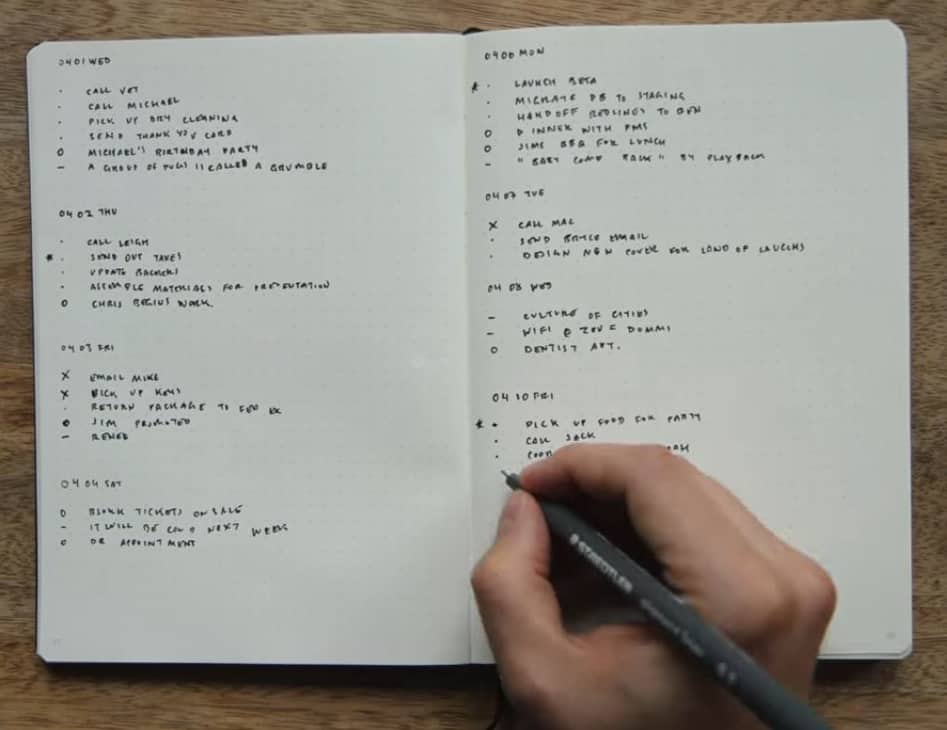 0401 WED
· CALL VET
· CALL MICHAEL
· PICK UP DRY CLEANING
· SEND THANK YOU CARD
O MICHAEL'S BIRTHDAY PARTY
– A GROUP OF PUGS IS CALLED A GRUMBLE
0402 THU
· CALL LEIGH
* · SEND OUT TAXES
· UPDATE BACKERS
· ASSEMBLE MATERIALS FOR PRESENTATION
O CHRIS BEGINS WORK.
0403 FRI
X EMAIL MIKE
X PICK UP KEYS
· RETURN PACKAGE TO FED EX
O JIM PROMOTED
– RENEE
0404 SAT
O TICKETS ON SALE
– IT WILL BE COLD NEXT WEEK
O DR APPOINTMENT
0406 MON
* · LAUNCH BETA
· MIGRATE DB TO STAGING
· HANDOFF REDLINES TO BEN
O DINNER WITH PMS
O JIMS BBQ FOR LUNCH
– "BABY COME BACK" BY PLAYER
0407 TUE
X CALL MAC
· SEND BRYCE EMAIL
· DESIGN NEW COVER FOR LAND OF LAUGHS
0408 WED
– CULTURE OF CITIES
– WIFI @
O DENTIST APT.
0410 FRI
* · PICK UP FOOD FOR PARTY
· CALL JACK
·
STAEDTLER